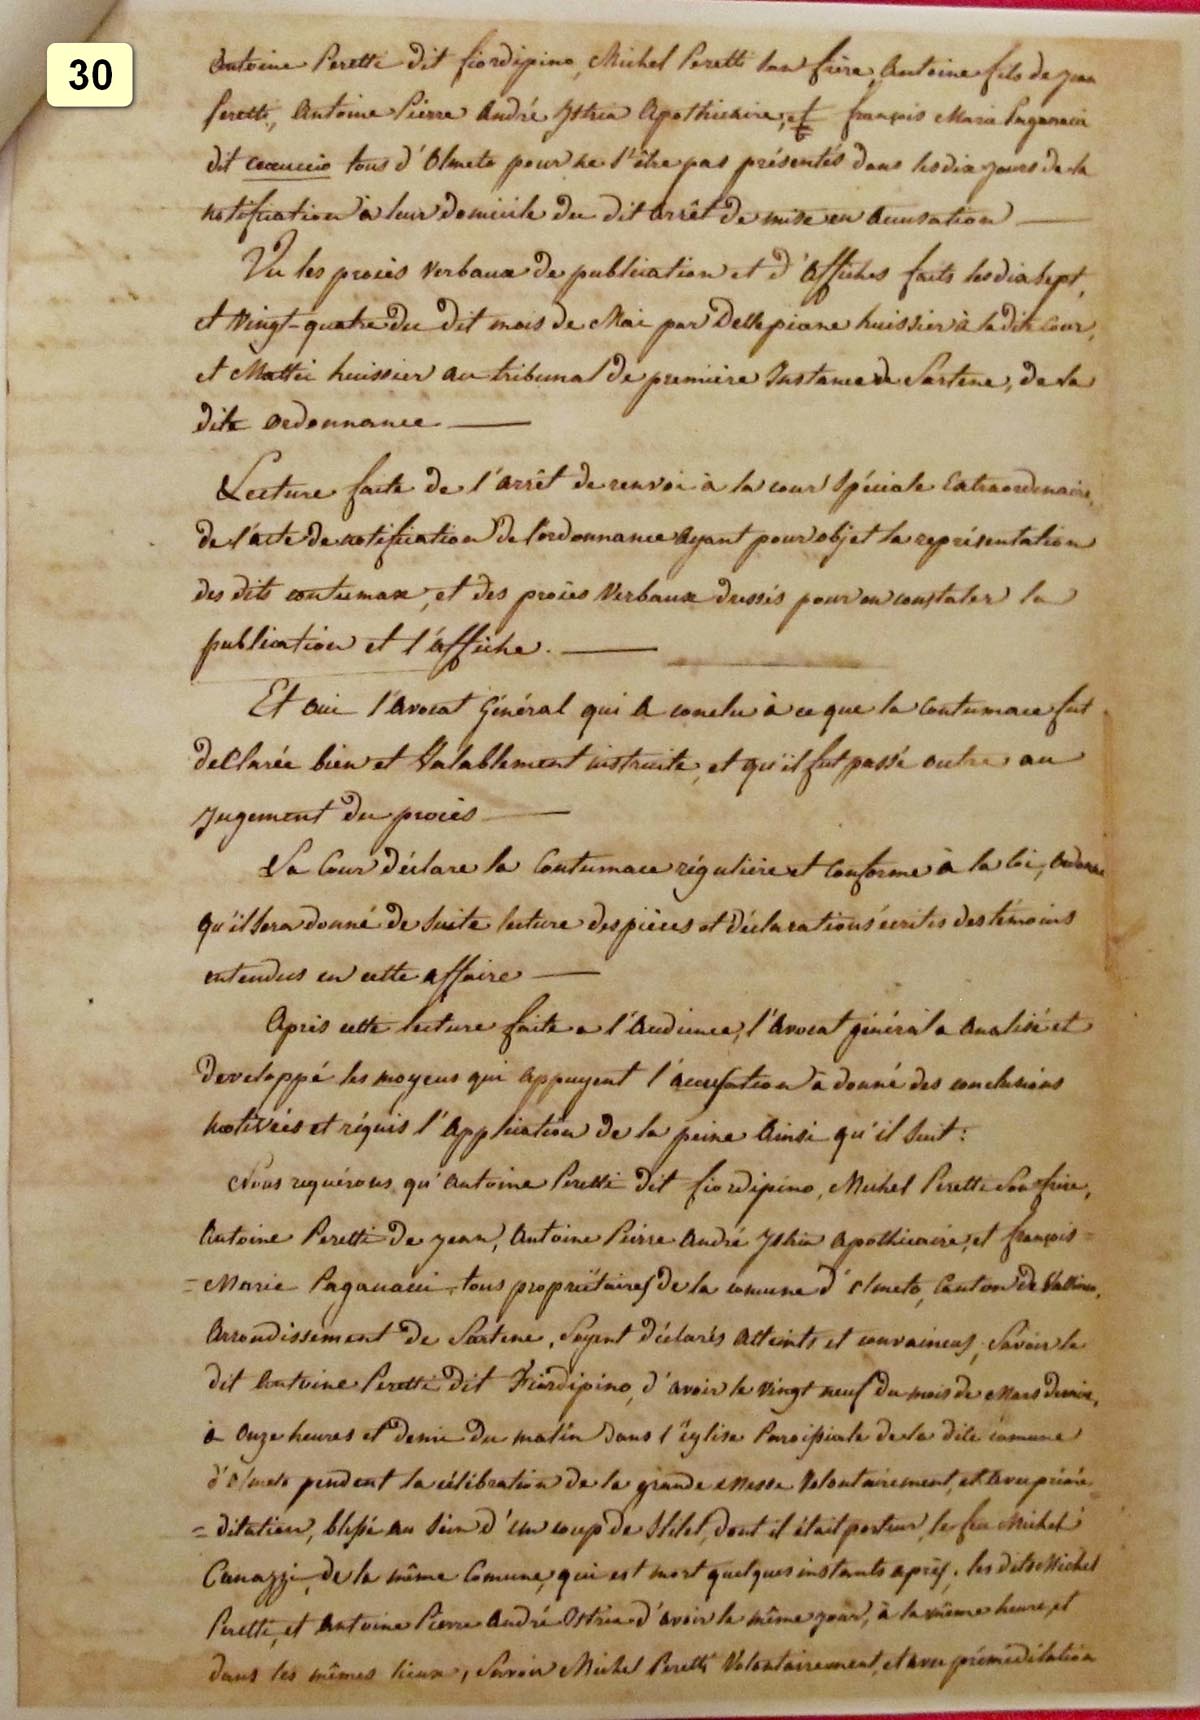 30
Antoine Peretti dit fiordipino, Michel Peretti son frère, Antoine fils de jean
Peretti, Antoine Pierre André Istria Apothicaire, et françois Marie Paganacci
dit tous d'Olmeto pour ne l'être pas présentés dans les dix jours de la
notification à leur domicile du dit arrêt de mise en accusation
Vu les procès verbaux de publication et d'affiches faits les dix sept,
et vingt-quatre du dit mois de Mai par Dellepiane huissier à la dite Cour,
et Mattei huissier au tribunal de première Instance de Sartene, de la
dite ordonnance
Lecture faite de l'arrêt de renvoi à la cour Spéciale Extraordinaire,
de l'acte de notification de l'ordonnance ayant pour objet la représentation
des dits contumax, et des procès verbaux dressés pour en constater la
publication et l'affiche.
Et oui l'avocat Général qui a conclu à ce que la Contumace fut
declarée bien et Valablement instruite, et qu'il fut passé outre au
jugement du procès
La Cour déclare la Contumace régulière et conforme à la loi, ordonne
qu'il sera donné de suite lecture des pièces et déclarations écrites des témoins
entendus en cette affaire
Après cette lecture faite a l'Audience, l'avocat général a analisé et
developpé les moyens qui appuyent l'accusation a donné des conclusions
motivées et réquis l'application de la peine ainsi qu'il suit:
Nous requérons qu'Antoine Peretti dit fiordipino, Michel Peretti son frère,
Antoine Peretti de jean, Antoine Pierre André Istria apothicaire, et françois=
=Marie Paganacci, tous propriétaires de la comune d'Olmeto, Canton de
Arrondissement de Sartene, soyent déclarés atteints et convaincus, Savoir le
dit Antoine Peretti dit Fiordipino, d'avoir le vingt neuf du mois de Mars dernier,
à onze heures et demie du matin dans l'église Paroissiale de la dite comune
d'Olmeto pendent la célébration de la grande Messe Volontairement, et avec prémé
=ditation, blessé au sein d'un coup de Stilet, dont il était porteur, le feu Michel
Canazzi, de la même Comune, qui est mort quelques instants après; les dits Michel
Peretti, et Antoine Pierre André Istria d'avoir le même jour, à la même heure, et
dans les mêmes lieux, Savoir Michel Peretti Volontairement, et avec préméditation